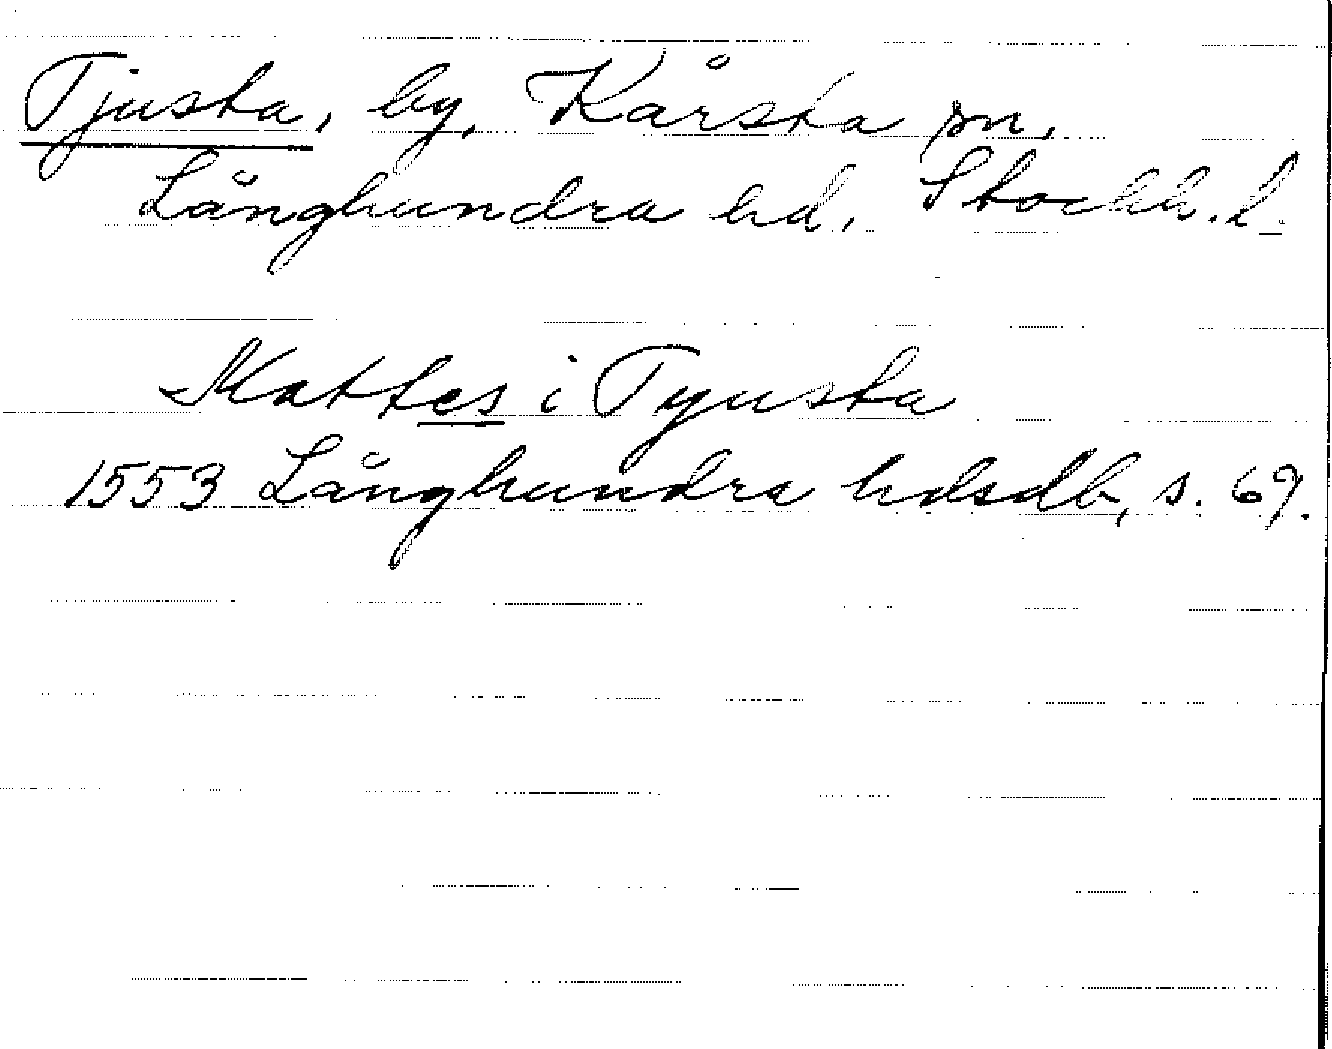 Tjusta, by, Kårsta sn.
Långhundra hd. Stockh. l.
Mattes i Tyusta
1553 Långhundra hdsdb, s. 69.